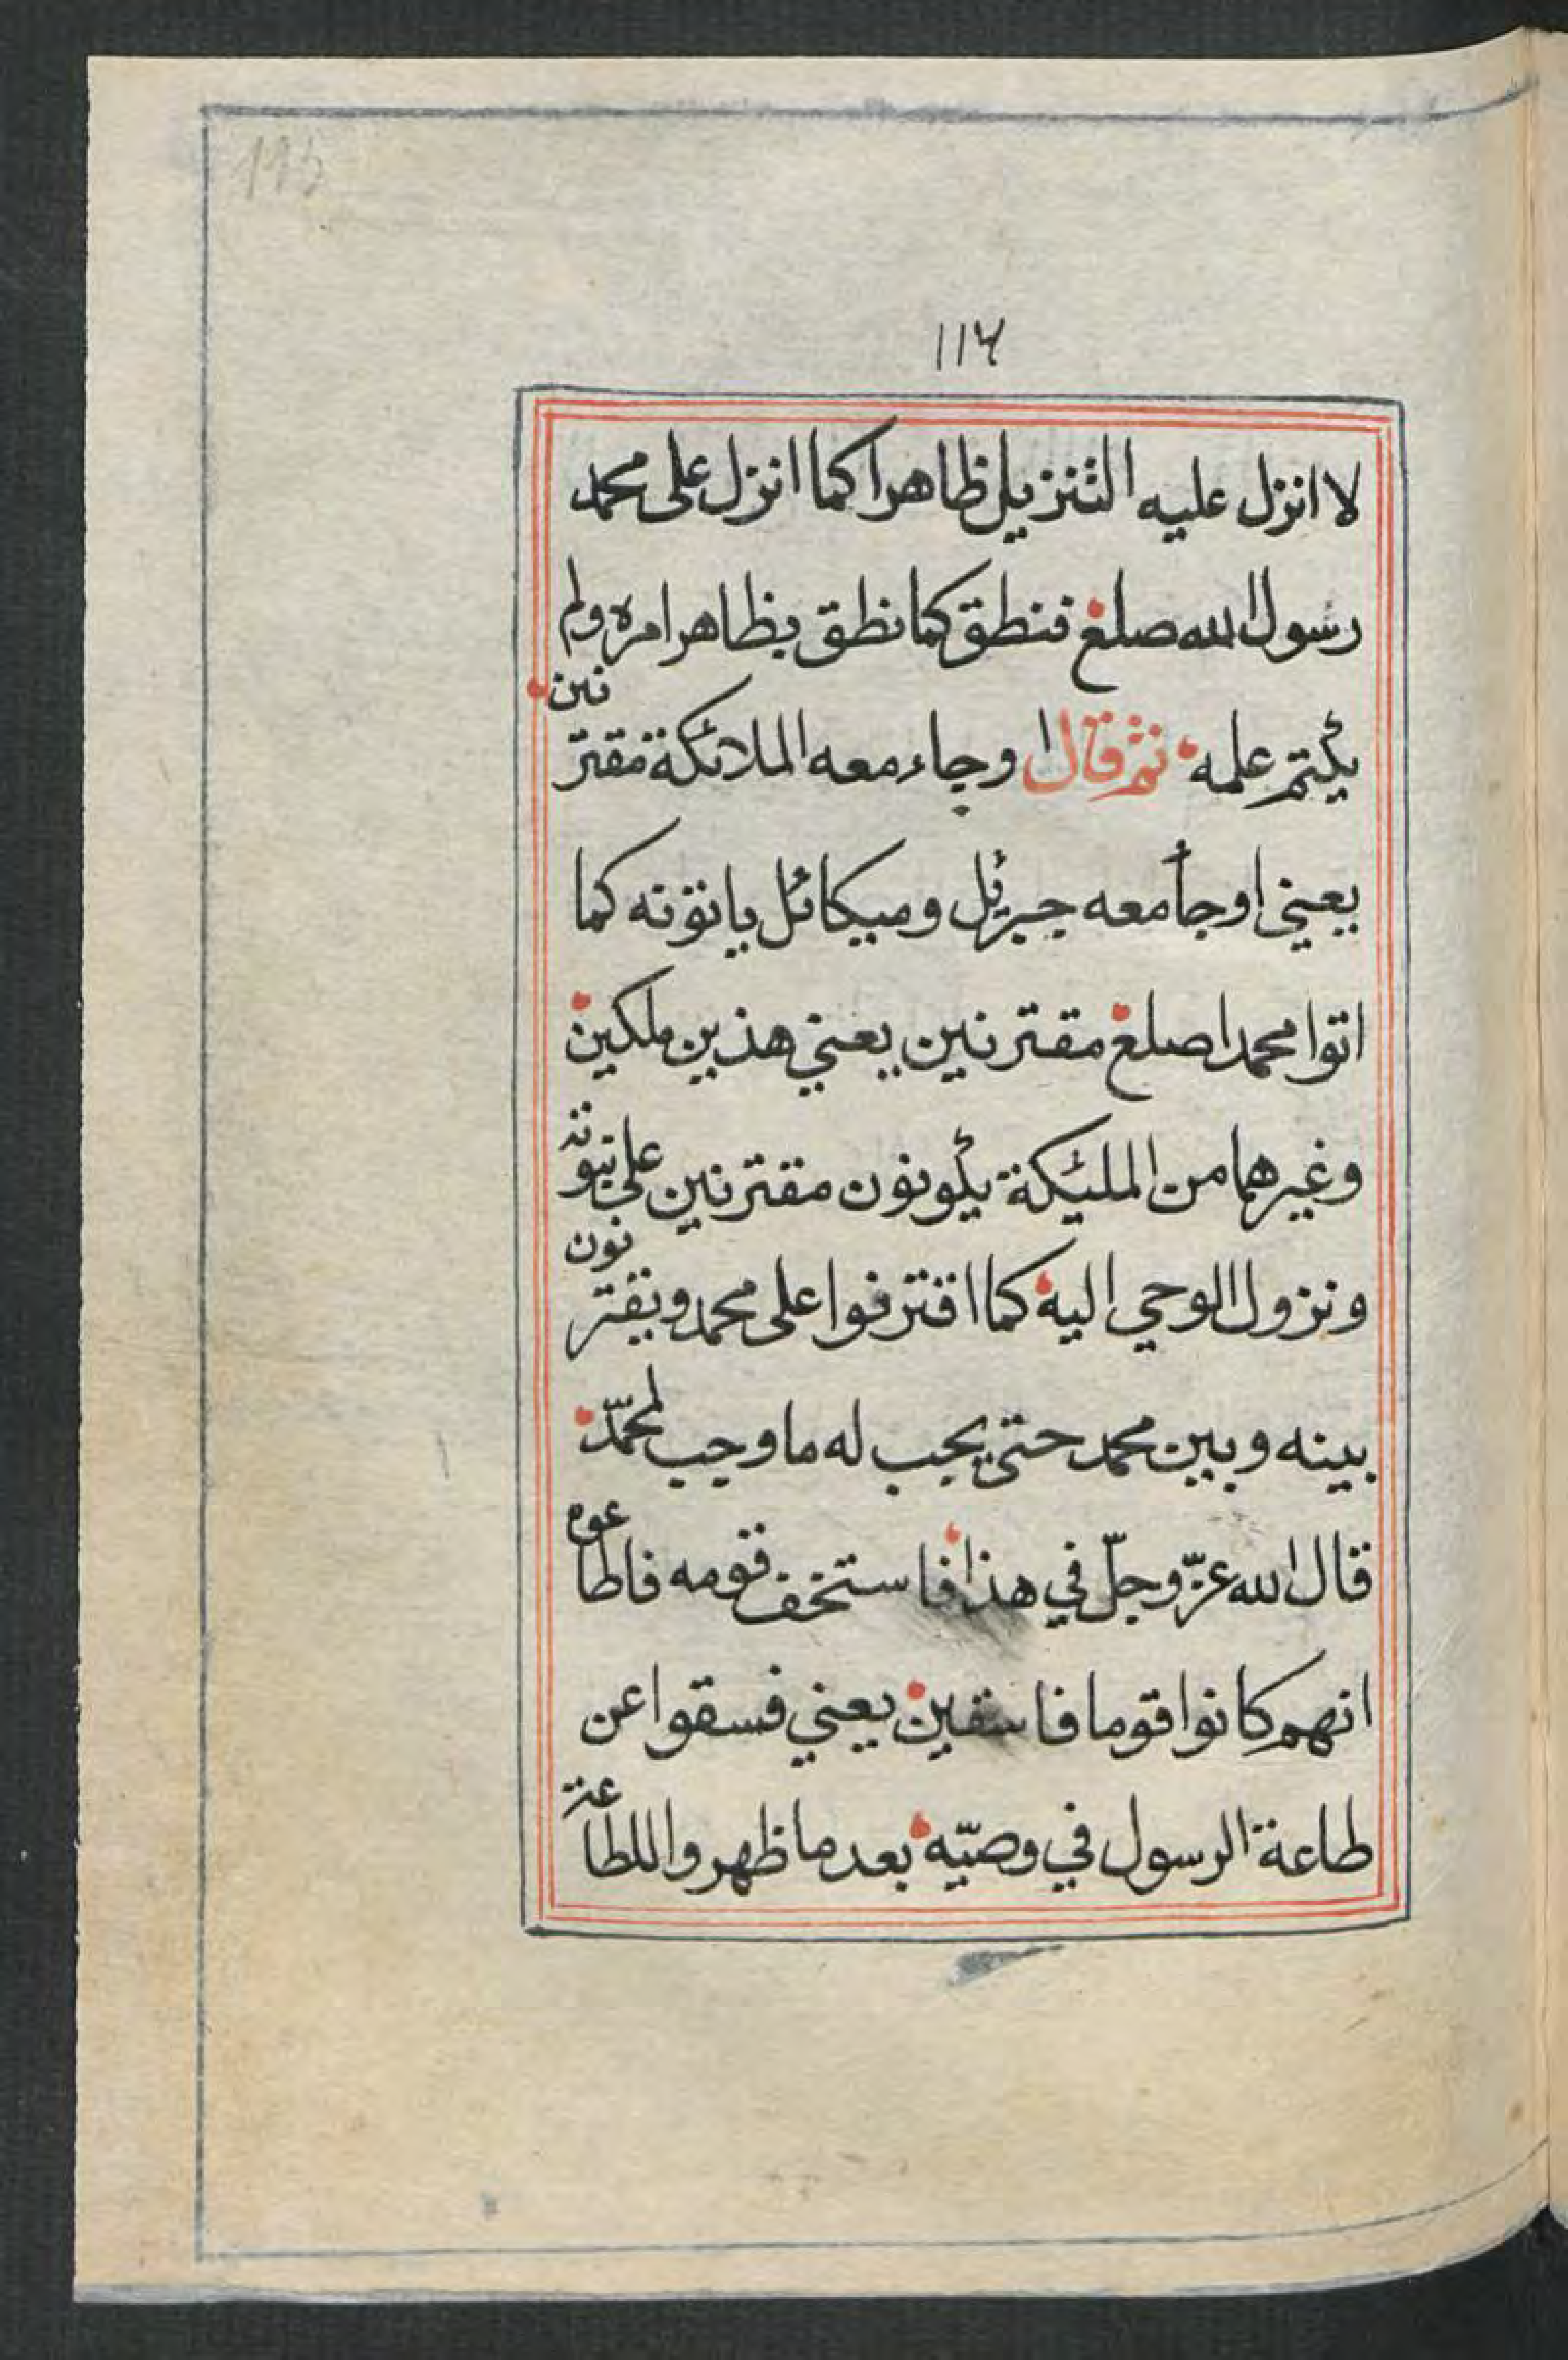 ١١٤
لا انزل عليه التنزيل ظاهرا كما انزل على محمد
رسول الله صلع فنطق كما نطق بظاهر امره ولم
يكتم علمه ثم قال او جاء معه الملائكة مقترنين
يعني او جأ معه جبرئل وميكائل ياتؤنه كما
اتوا محمدا صلع مقترنين يعني هذين ملكين
وغيرهما من الملئكة يكونون مقترنين على نبوته
ونزول الوحي اليه كما اقترفوا على محمد ويقترنون
بينه وبين محمد حتى يجب له ما وجب لمحمّد
قال الله عزّ وجلّ في هذا فاستخف قومه فاطاعوه
انهم كانوا قوما فاسقين يعني فسقوا عن
طاعة الرسول في وصيّه بعد ما ظهر واللطاعة